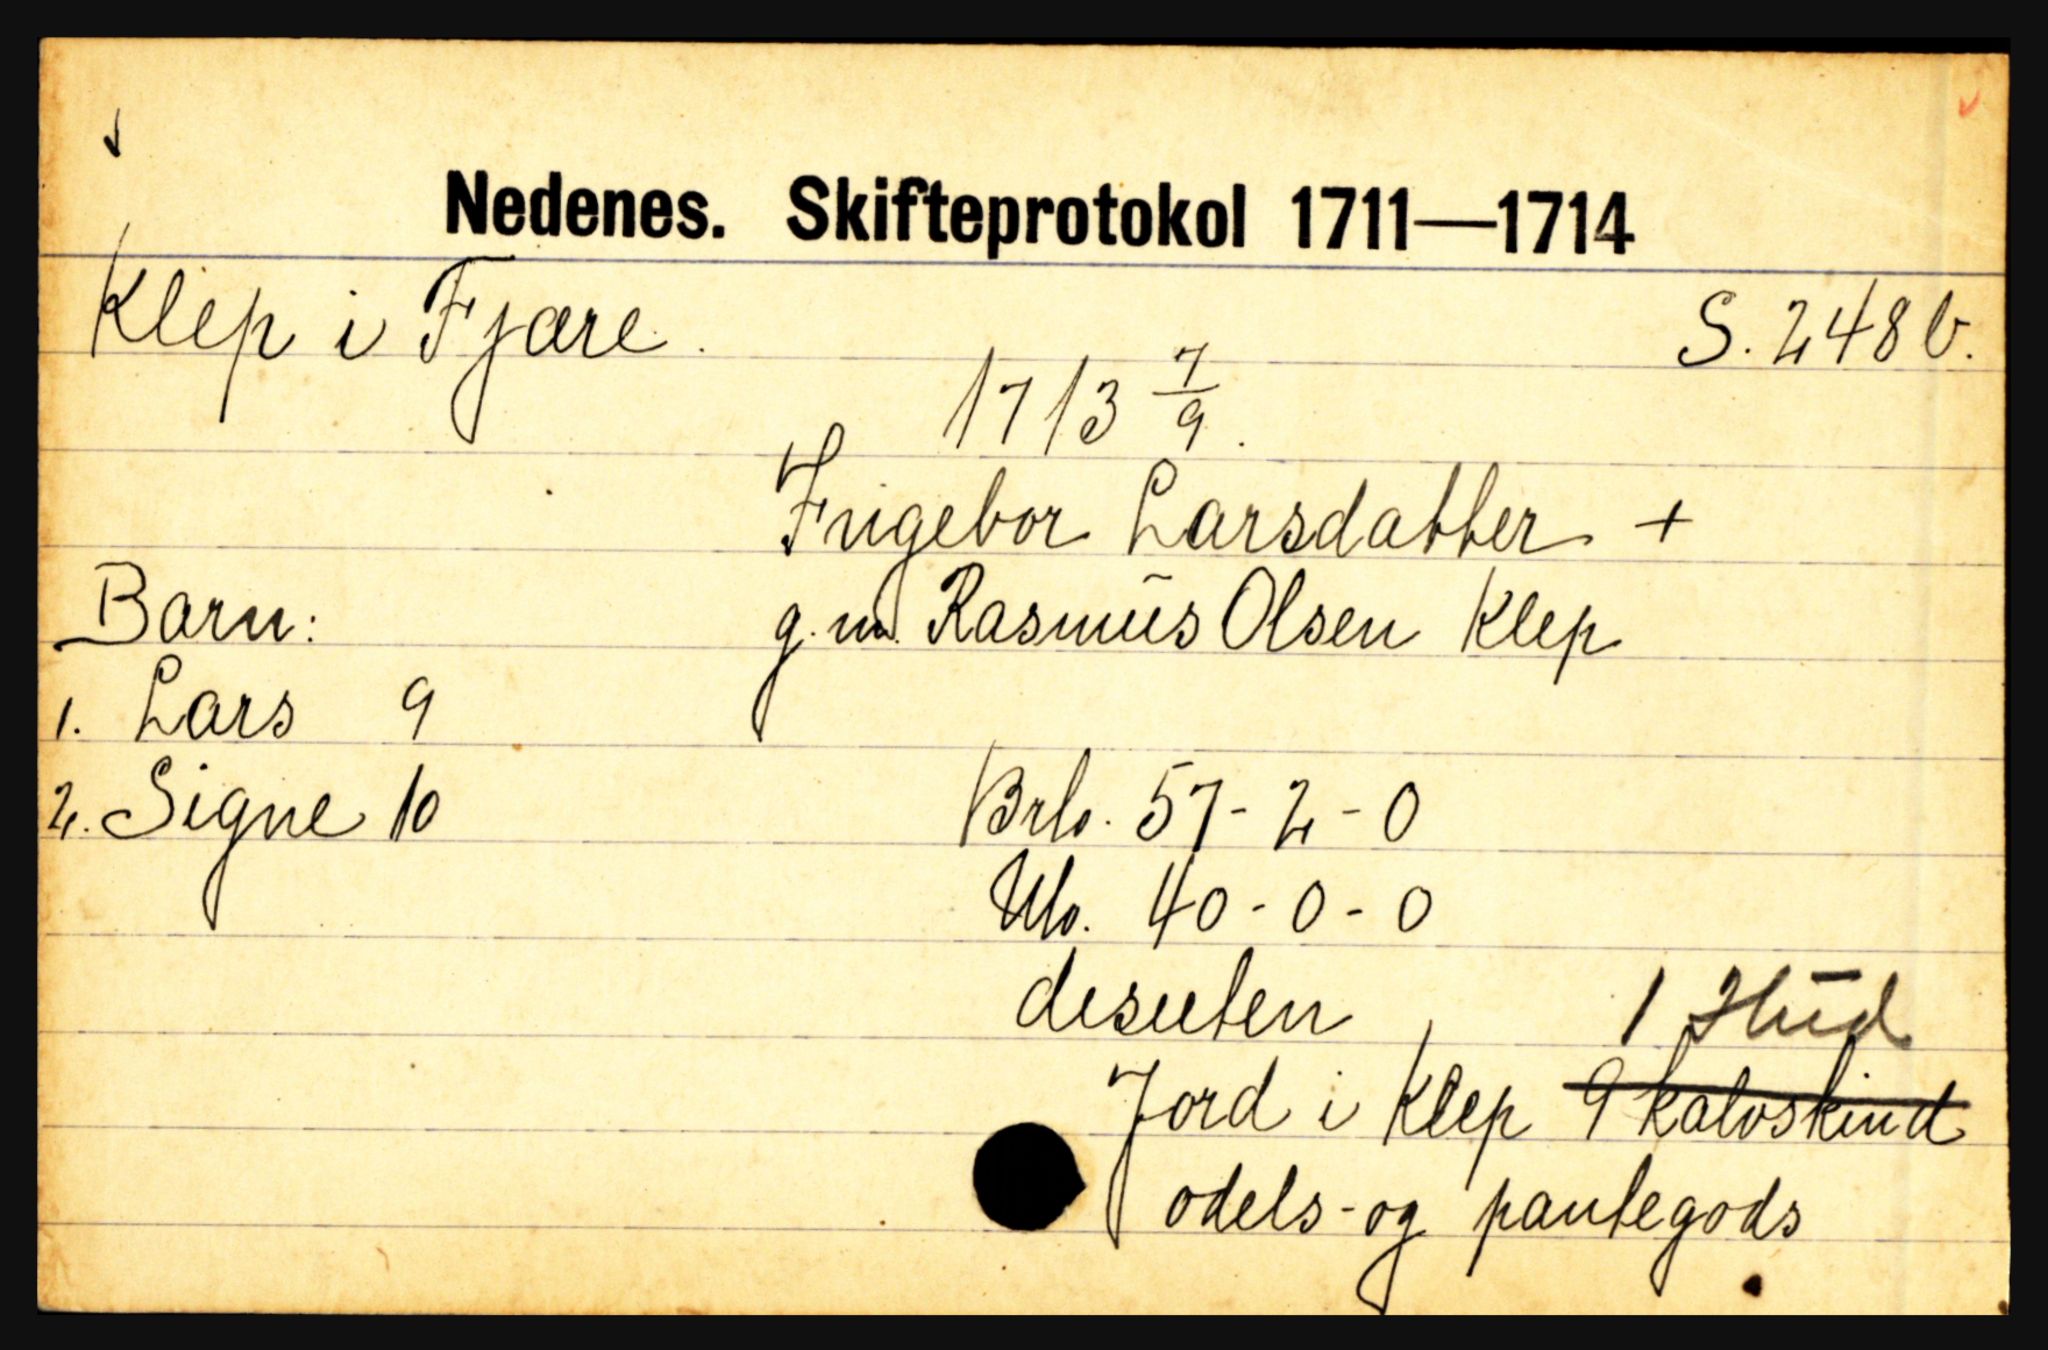 Nedenes. Skifteprotokol 1711—1714
Klep i Fjære.
S. 248 b.
1713 7/9.
Ingebor Larsdatter +
Barn:
g.m. Rasmus Olsen Klep
1. Lars 9
2. Signe 10
Brb. 57-2-0
Ub. 40-0-0
desuten 1 Hud
Jord i Klep 9 kalvskind
odels- og pantegods